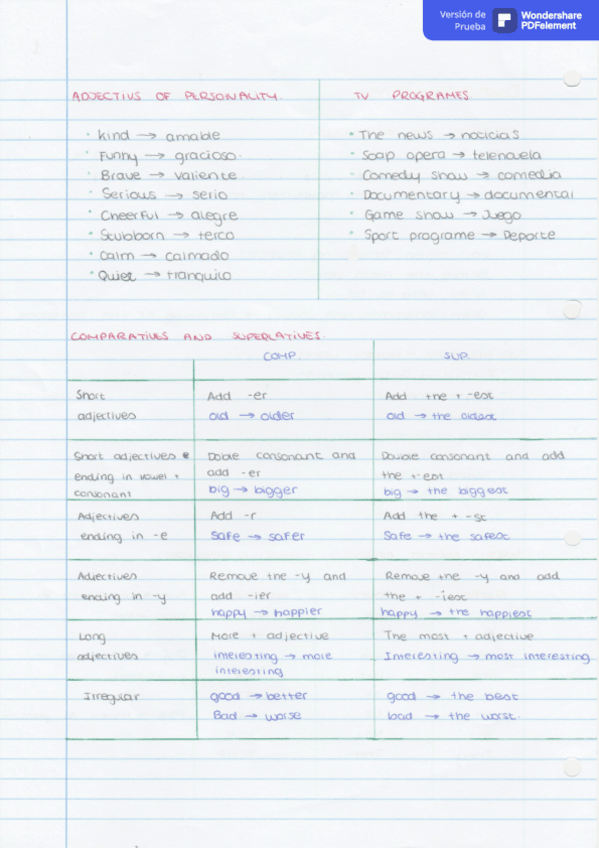 Versión de Prueba
Wondershare PDFelement
ADJECTIVS OF PERSONALITY.
· Kind → amable
· Funny → gracioso.
· Brave → valiente
· Serious → serio
· Cheerful → alegre
· Stubborn → terco
· Calm → calmado
· Quiet → tranquilo
TV PROGRAMES
· The news → noticias
· Soap opera → telenovela
· Comedy show → comedia
· Documentary → documental
· Game show → Juego
· Sport programe → Deporte
COMPARATIVES AND SUPERLATIVES.
COMP SUP.
Short adjectives
Add -er
old → older
Add the + -est
old → the oldest
Short adjectives
ending in vowel +
consonant
Doble consonant and
add -er
big → bigger
Double consonant and add
the + -est
big → the biggest
Adjectives
ending in -e
Add -r
Safe → safer
Add the + -st
Safe → the safest
Adjectives
ending in -y
Remove the -y and
add -ier
happy → happier
Remove the -y and add
the + -iest
happy → the happiest
Long
adjectives
More + adjective
interesting → more
interesting
The most + adjective
Interesting → most interesting
Irregular
good → better
Bad → worse
good → the best
bad → the worst.